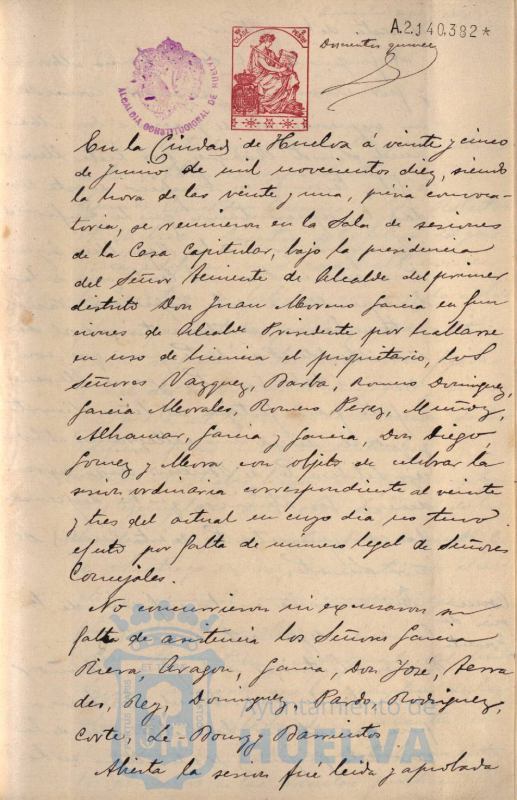 A.2.140.382*
Doscientos quince
ALCALDIA CONSTITUCIONAL DE HUELVA
En la Ciudad de Huelva á veinte y cinco
de Junio de mil novecientos diez, siendo
la hora de las veinte y una, previa convoca-
toria, se reunieron en la Sala de sesiones
de la Casa Capitular, bajo la presidencia
del Señor Teniente de Alcalde del primer
distrito Don Juan Moreno Garcia en fun
ciones de Alcalde Presidente por hallarse
en uso de licencia el propietario, los
Señores Vazquez, Barba, Romero Dominguez,
Garcia Morales, Romero Perez, Muñoz,
Alhamar, Garcia y Garcia, Don Diego,
Gomez y Mora con objeto de celebrar la
sesion ordinaria correspondiente al veinte
y tres del actual en cuyo dia no tuvo
efecto por falta de número legal de Señores
Concejales.
No concurrieron ni excusaron su
falta de asistencia los Señores Garcia
Riera, Aragon, Garcia, Don José, Terra
des, Rey, Dominguez, Pardo, Rodriguez,
Corte, Le-Bourg y Barrientos.
Ayuntamiento de
HUELVA
Abierta la sesion fué leida y aprobada